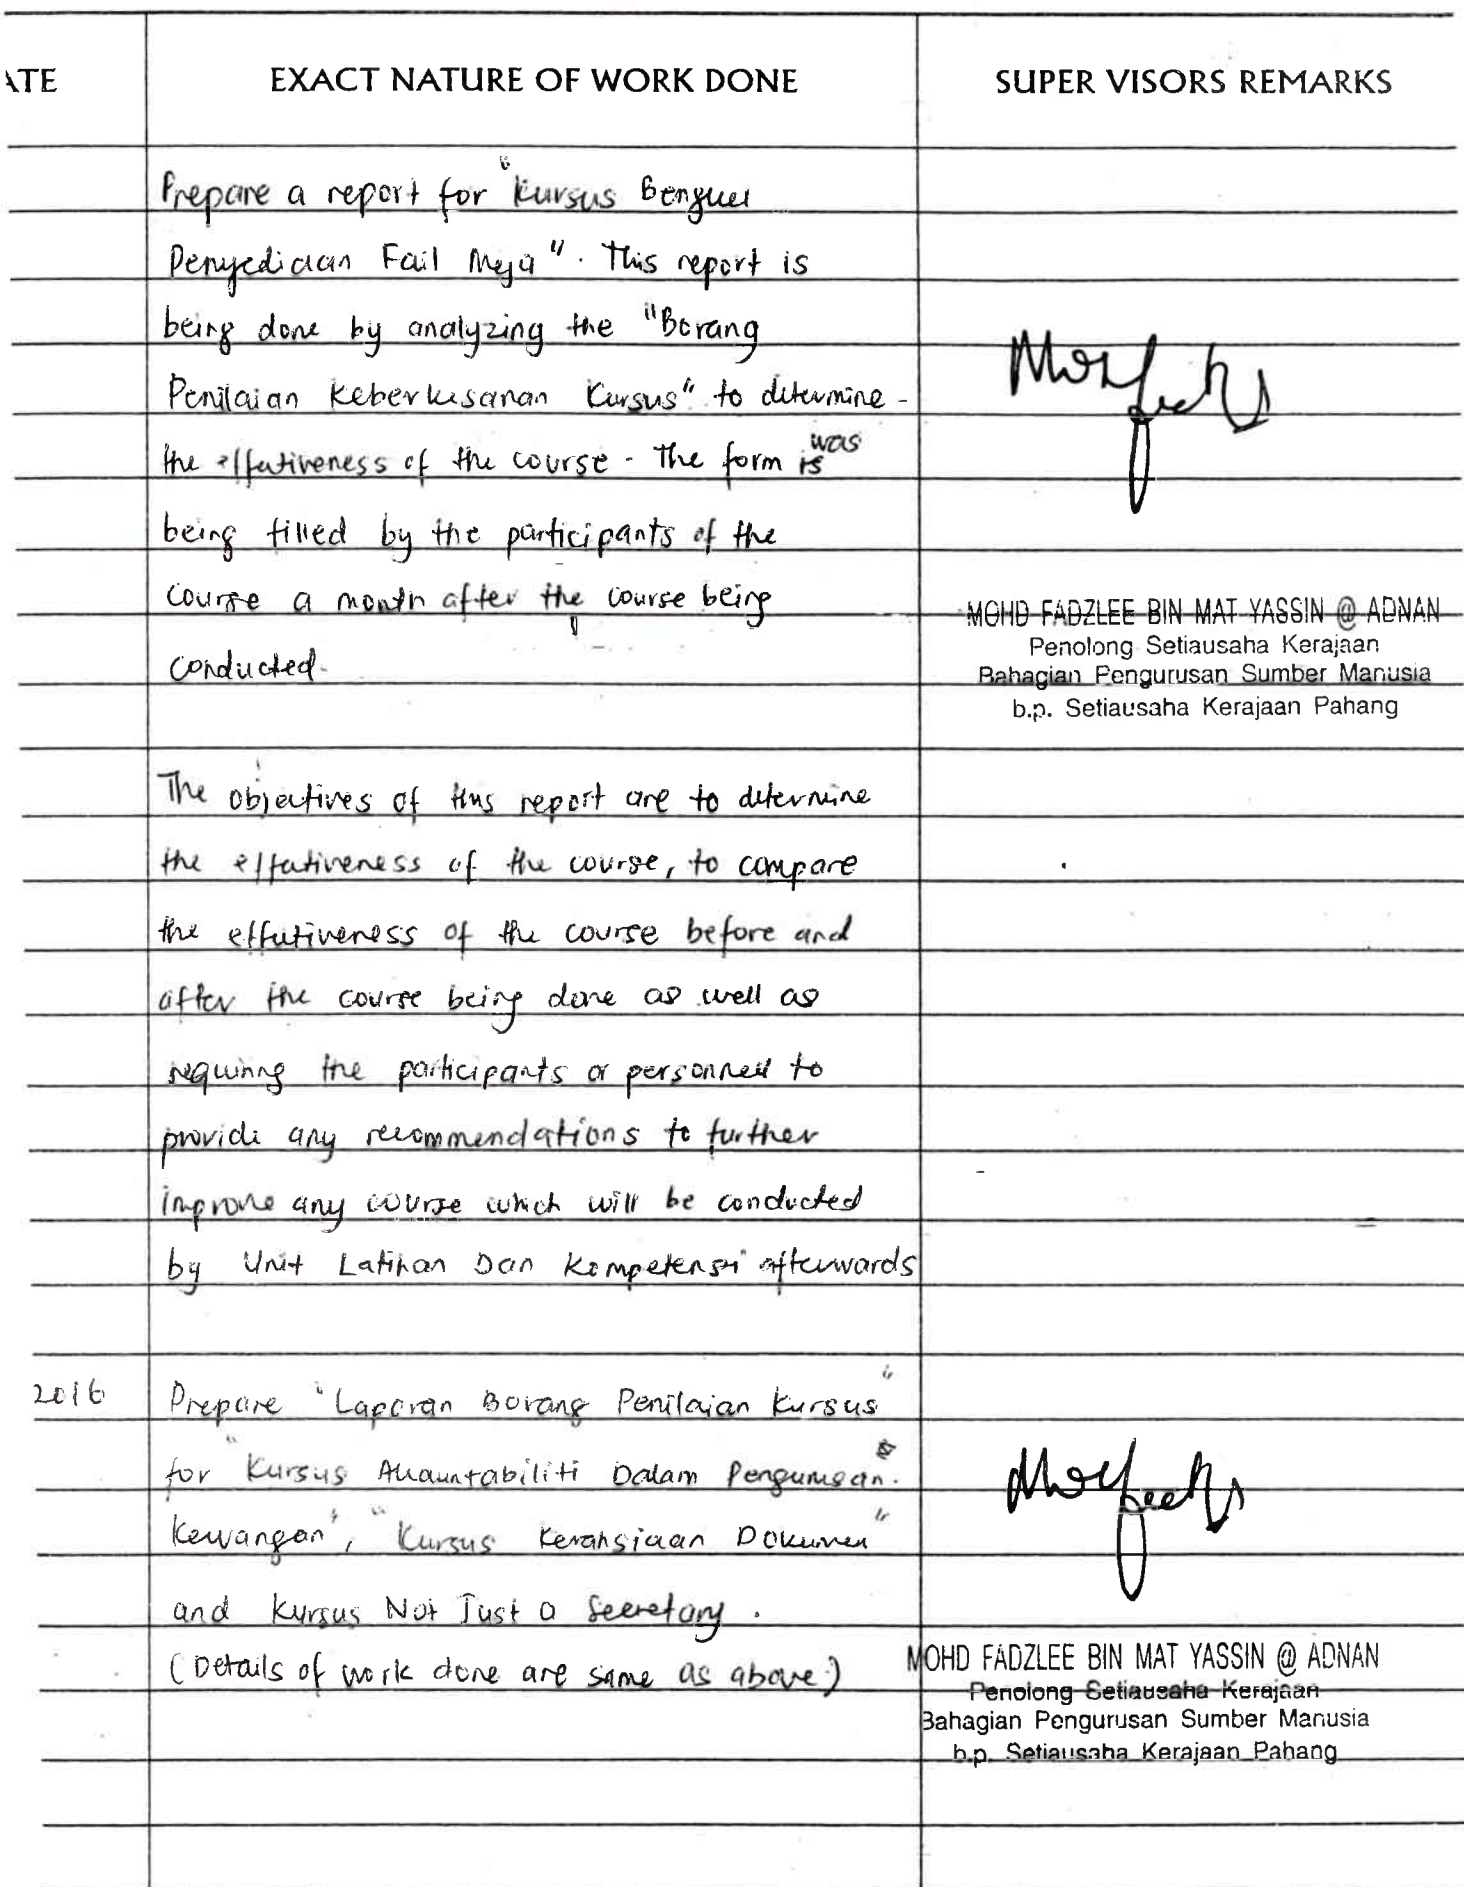 ATE EXACT NATURE OF WORK DONE SUPER VISORS REMARKS
Prepare a report for "Kursus Bengkel
Penyediaan Fail Meja". This report is
being done by analyzing the "Borang
Penilaian Keberkesanan Kursus" to determine
the effectiveness of the course. The form is was
being filled by the participants of the
course a month after the course being
conducted.
MOHD FADZLEE BIN MAT YASSIN @ ADNAN
Penolong Setiausaha Kerajaan
Bahagian Pengurusan Sumber Manusia
b.p. Setiausaha Kerajaan Pahang
The objectives of this report are to determine
the effectiveness of the course, to compare
the effectiveness of the course before and
after the course being done as well as
requiring the participants or personnel to
provide any recommendations to further
improve any course which will be conducted
by Unit Latihan Dan Kompetensi afterwards
2016 Prepare "Laporan Borang Penilaian Kursus"
for "Kursus Akauntabiliti Dalam Pengurusan
Kewangan", "Kursus Kerahsiaan Dokumen"
and Kursus Not Just a Secretary.
(Details of work done are same as above)
MOHD FADZLEE BIN MAT YASSIN @ ADNAN
Penolong Setiausaha Kerajaan
Bahagian Pengurusan Sumber Manusia
b.p. Setiausaha Kerajaan Pahang